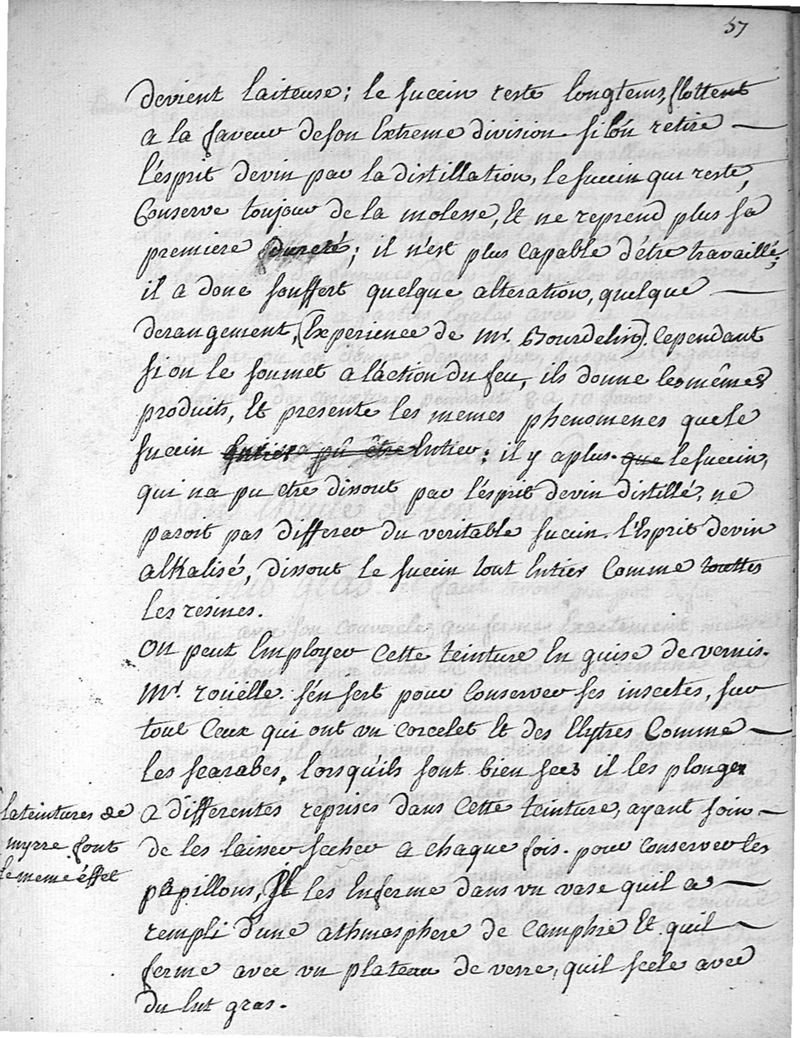 57
devient laiteuse; le succin reste longtems flottent
a la faveur de son Extreme division. si lón retire
lésprit de vin par la distillation, le succin qui reste,
Conserve toujour de la molesse, Et ne reprend plus sa
premiere dureté; il n'est plus capable détre travaillé,
il a donc souffert quelque alteration, quelque
derangement, (Expérience de Mr. Bourdelin). Cependant
si on le soumet a láction du feu, ils donne les mêmes
produits, Et presente les memes phenomenes que le
succin entier pû être Entier; il y a plus que le succin,
qui na pu etre dissout par lésprit de vin distillé, ne
paroit pas differer du veritable succin. l'Esprit de vin
alkalisé, dissout le succin tout Entier Comme touttes
les resines.
On peut Employer cette teinture En guise de vernis.
Mr. rouelle. sén sert pour Conserver ses insectes, sur
tout Ceux qui ont un corcelet Et des Elytres Comme
les scarabes, lorsquils sont bien secs il les plonge
a differentes reprises dans cette teinture, ayant soin
de les laisser secher a chaque fois. pour conserver les
papillons, Il les Enferme dans un vase quil a
rempli dune athmosphere de Camphre Et quil
ferme avec un plateau de verre, quil scele avec
du lut gras.
la teintures de
myrre font
le meme éffet